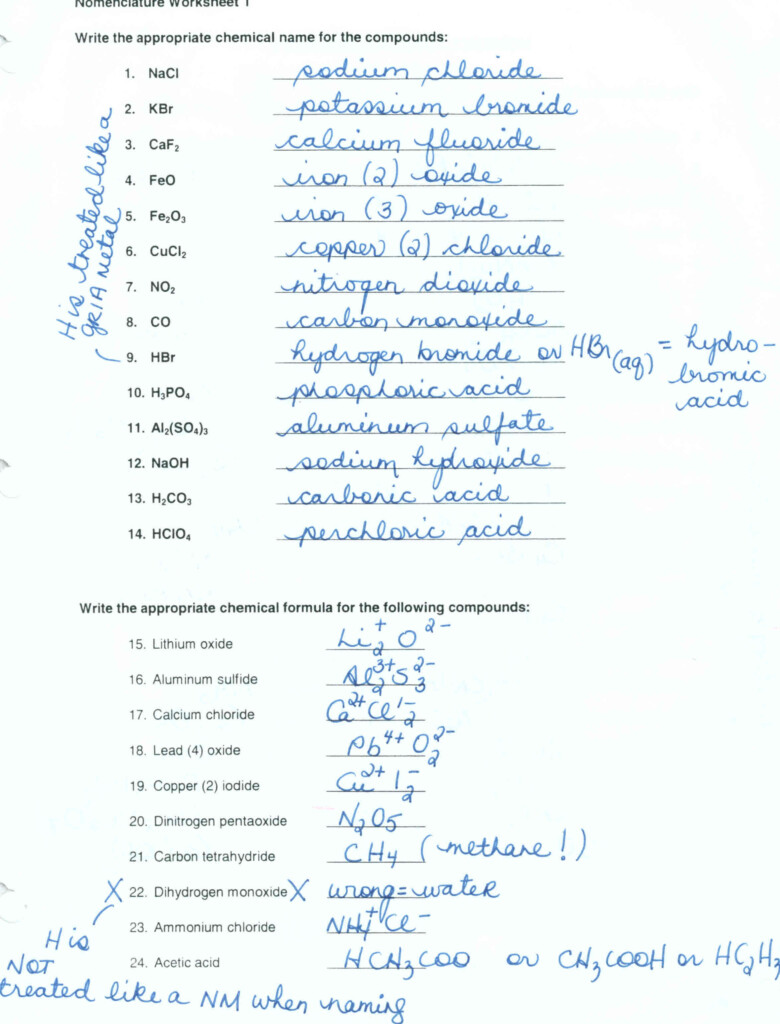 Nomenclature Worksheet 1
Write the appropriate chemical name for the compounds:
1. NaCl sodium chloride
2. KBr potassium bromide
3. CaF₂ calcium fluoride
4. FeO iron (2) oxide
5. Fe₂O₃ iron (3) oxide
6. CuCl₂ copper (2) chloride
7. NO₂ nitrogen dioxide
8. CO carbon monoxide
H is treated like a
GRIA metal
9. HBr hydrogen bromide or HBr(aq) = hydro-
bromic
acid
10. H₃PO₄ phosphoric acid
11. Al₂(SO₄)₃ aluminum sulfate
12. NaOH sodium hydroxide
13. H₂CO₃ carbonic acid
14. HClO₄ perchloric acid
Write the appropriate chemical formula for the following compounds:
15. Lithium oxide Li₂⁺ O²⁻
16. Aluminum sulfide Al₂³⁺ S₃²⁻
17. Calcium chloride Ca²⁺ Cl₂¹⁻
18. Lead (4) oxide Pb⁴⁺ O₂²⁻
19. Copper (2) iodide Cu²⁺ I₂⁻
20. Dinitrogen pentaoxide N₂O₅
21. Carbon tetrahydride CH₄ (methane!)
X 22. Dihydrogen monoxide X wrong = water
23. Ammonium chloride NH₄⁺Cl⁻
24. Acetic acid HCH₃COO or CH₃COOH or HC₂H₃
H is
NOT
treated like a NM when naming